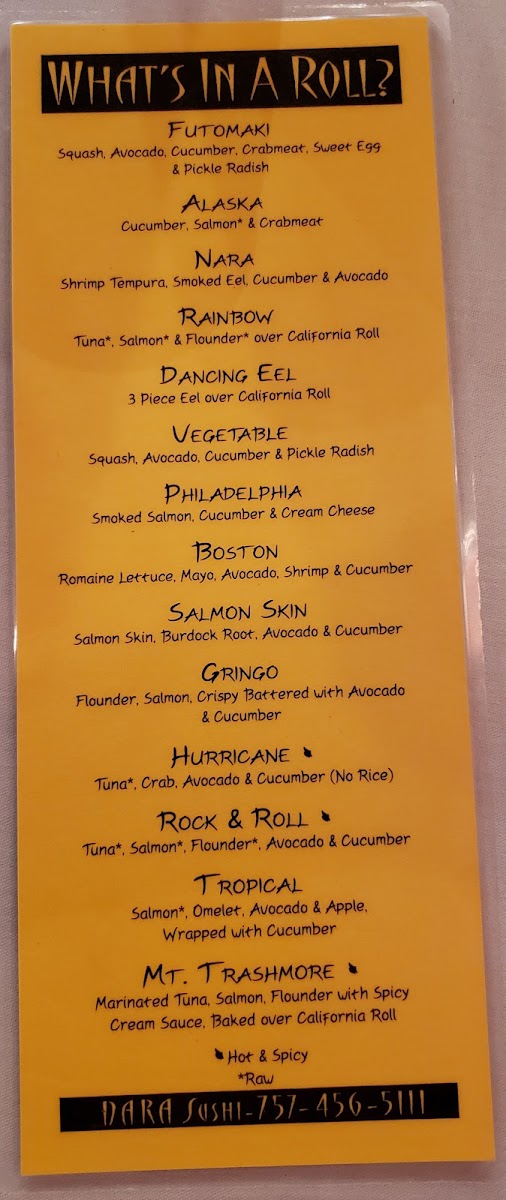 What's In A Roll?
Futomaki
Squash, Avocado, Cucumber, Crabmeat, Sweet Egg
& Pickle Radish
Alaska
Cucumber, Salmon* & Crabmeat
Nara
Shrimp Tempura, Smoked Eel, Cucumber & Avocado
Rainbow
Tuna*, Salmon* & Flounder* over California Roll
Dancing Eel
3 Piece Eel over California Roll
Vegetable
Squash, Avocado, Cucumber & Pickle Radish
Philadelphia
Smoked Salmon, Cucumber & Cream Cheese
Boston
Romaine Lettuce, Mayo, Avocado, Shrimp & Cucumber
Salmon Skin
Salmon Skin, Burdock Root, Avocado & Cucumber
Gringo
Flounder, Salmon, Crispy Battered with Avocado
& Cucumber
Hurricane
Tuna*, Crab, Avocado & Cucumber (No Rice)
Rock & Roll
Tuna*, Salmon*, Flounder*, Avocado & Cucumber
Tropical
Salmon*, Omelet, Avocado & Apple,
Wrapped with Cucumber
Mt. Trashmore
Marinated Tuna, Salmon, Flounder with Spicy
Cream Sauce, Baked over California Roll
Hot & Spicy
*Raw
NARA Sushi-757-456-5111